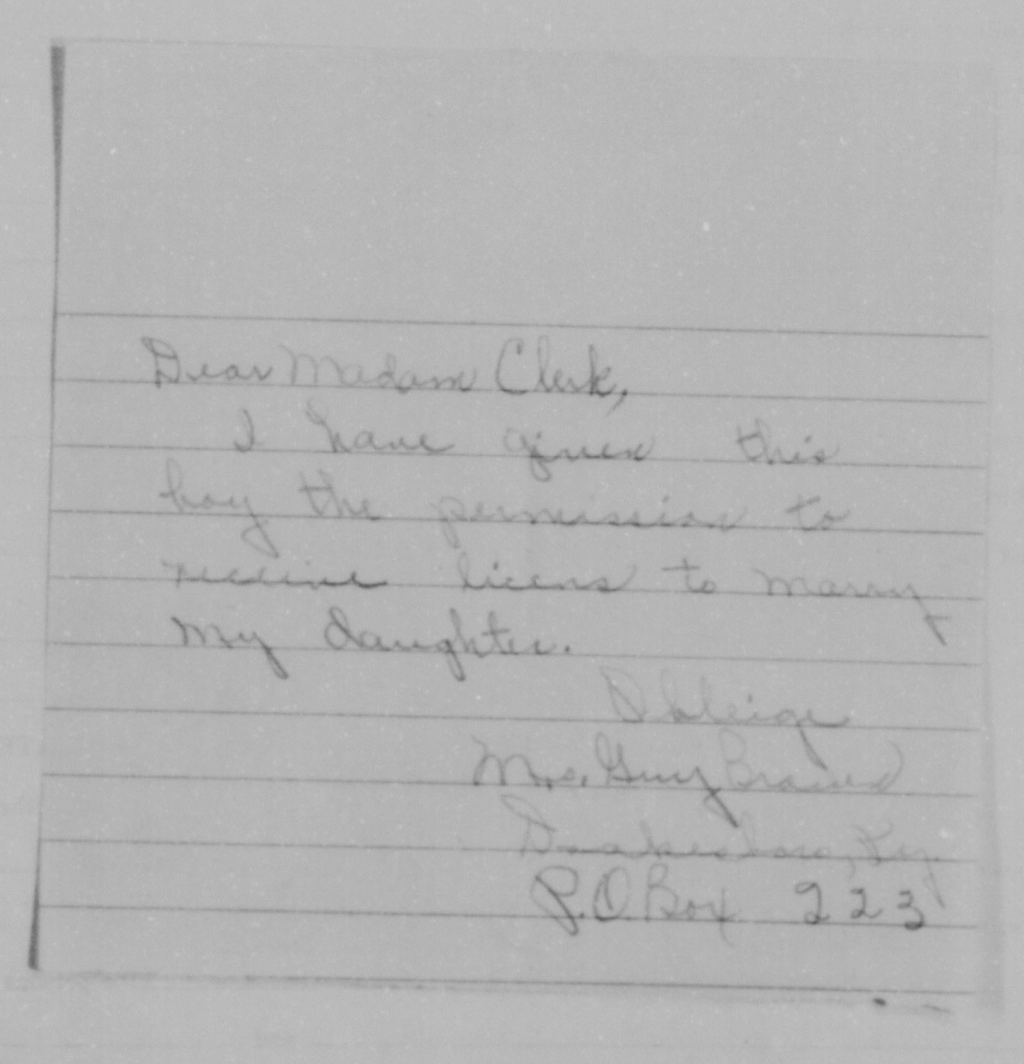 Dear Madam Clerk,
I have given this
boy the permission to
receive licens to marry
my daughter.
Obleige
Mrs. Guy Brown
Drakesboro, Ky
P.O Box 223